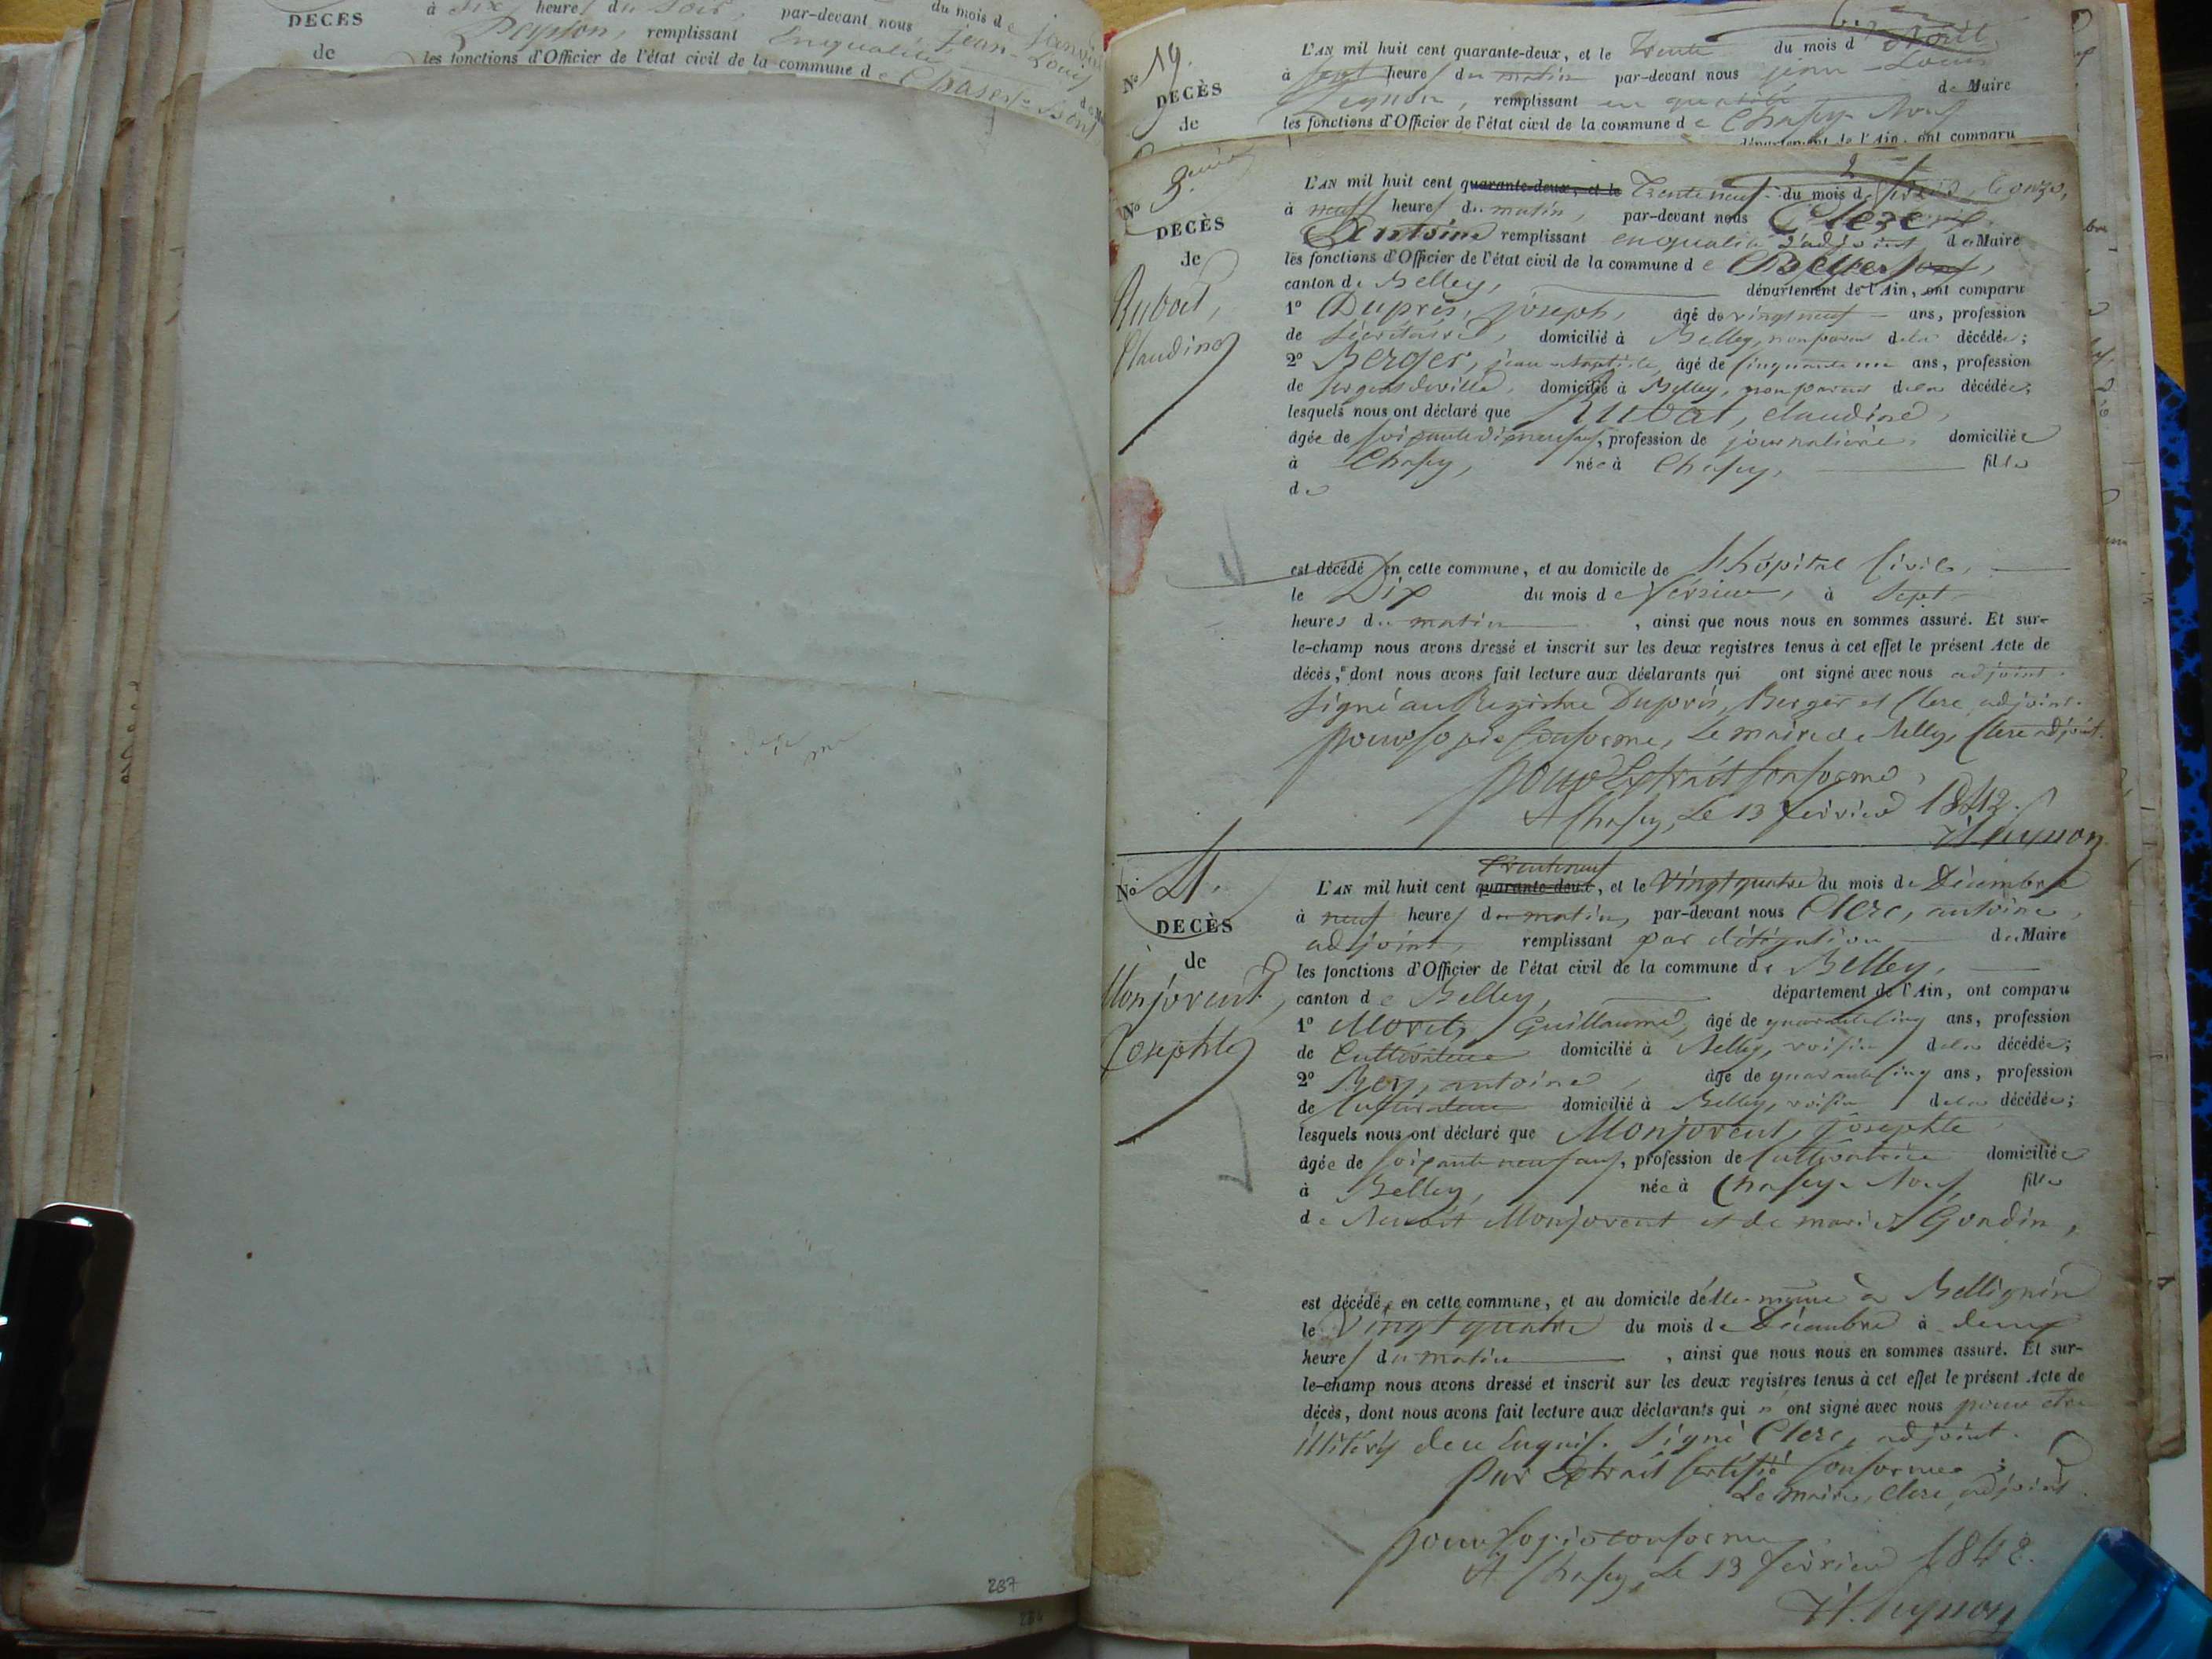 DÉCÈS
de
à Six heures du Soir, par-devant nous Jean-Louis
Peysson, remplissant en qualité de Maire
les fonctions d'Officier de l'état civil de la commune de
du mois de Janvier
237
N° 19.
DÉCÈS
de
L'AN mil huit cent quarante-deux, et le Trente du mois d'Avril
à sept heures du matin par-devant nous jean-Louis
remplissant en qualité de Maire
les fonctions d'Officier de l'état civil de la commune de Chasey-
département de l'Ain, ont comparu
N° 3
DÉCÈS
de
Rubod,
Claudine
L'AN mil huit cent quarante-deux, et le Trente neuf du mois de Le onze,
à neuf heures du matin, par-devant nous Clerc
Antoine remplissant en qualité d'adjoint, de Maire
les fonctions d'Officier de l'état civil de la commune de
canton de Belley, département de l'Ain, ont comparu
1° Duprés, joseph, âgé de vingt neuf ans, profession
de Sécrétaire, domicilié à Belley, non parent de la décédée;
2° Berger, jean âgé de Cinquante ans, profession
de Sergent de ville, domicilié à Belley, non parent de la décédée;
lesquels nous ont déclaré que Rubat, claudine,
âgée de soixante dix neuf ans, profession de journalière, domiciliée
à Chasey, née à Chasey, fille
de
est décédé en cette commune, et au domicile de l'hôpital Civil,
le Dix du mois de Février, à Sept
heures du matin, ainsi que nous nous en sommes assuré. Et sur-
le-champ nous avons dressé et inscrit sur les deux registres tenus à cet effet le présent Acte de
décès, dont nous avons fait lecture aux déclarants qui ont signé avec nous adjoint.
Signé au Registre Duprés, Berger et Clerc adjoint.
pour Copie Conforme, Le maire de Belley, Clerc adjoint.
pour Extrait Conforme,
A Chasey, Le 13 février 1842.
N° 4.
DÉCÈS
de
Monjovent,
Josephte
Trente neuf
L'AN mil huit cent quarante-deux, et le Vingt quatre du mois de Décembre
à neuf heures du matin, par-devant nous Clerc, antoine,
adjoint, remplissant par délégation de Maire
les fonctions d'Officier de l'état civil de la commune de Belley,
canton de Belley, département de l'Ain, ont comparu
1° Guillaume, âgé de quarante cinq ans, profession
de Cultivateur domicilié à Belley, voisin de la décédée;
2° antoine, âgé de quarante cinq ans, profession
de Cultivateur domicilié à Belley, voisin de la décédée;
lesquels nous ont déclaré que Monjovent, josephte
âgée de soixante neuf ans, profession de Cultivatrice domiciliée
à Belley, née à Chasey- fille
de Benoît Monjovent et de marie Gondin,
est décédée en cette commune, et au domicile d'elle-même à Bellignin
le Vingt quatre du mois de Décembre à deux
heures du matin, ainsi que nous nous en sommes assuré. Et sur-
le-champ nous avons dressé et inscrit sur les deux registres tenus à cet effet le présent Acte de
décès, dont nous avons fait lecture aux déclarants qui n'ont signé avec nous pour être
illitérés de ce Enquis. Signé Clerc, adjoint.
Pour Extrait Certifié Conforme;
Le maire, Clerc adjoint.
pour Copie conforme
A Chasey, Le 13 février 1842.